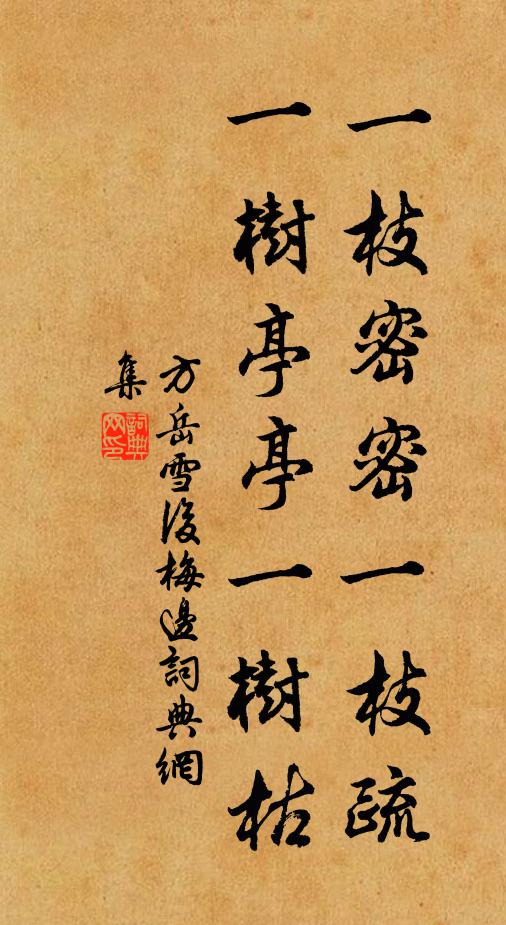 一枝密密一枝疏
一樹亭亭一樹枯
方岳雪後梅邊詞典網
集
詞典网印